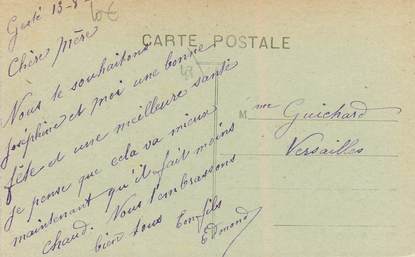 Gesté 13-8
10€
Chère Mère
CARTE POSTALE
Nous te souhaitons
Joséphine et moi une bonne
fête et une meilleure santé
je pense que cela va mieux
maintenant qu'il fait moins
chaud. Nous t'embrassons
bien tous ton fils
Edmond
Mme Guichard
Versailles